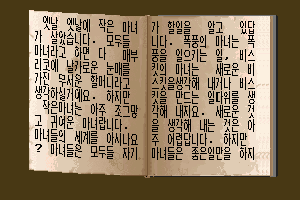 옛날 옛날에 작은 마녀
가 살았습니다. 모두들
마녀라고 하면 다 매부
리코에 날카로운 눈매를
가진 무서운 할머니라고
생각하실거예요. 하지만
작은마녀는 아주 조그맣
고 귀여운 마녀랍니다.
마녀들의 세계를 아시나요
? 마녀들은 모두들 자기
가 할일을 알고 있답
니다. 폭풍의 마녀는 폭
풍을 일으키는 일, 비소
것의 마녀는 새로운 비
소것을생각해 내거나 비소
것을 만드는 일다위를 생
각해 내지요. 새로운 것
을 생각해 내는 것은 아
주 어렵답니다. 하지만
마녀들은 좋은일만을 하지